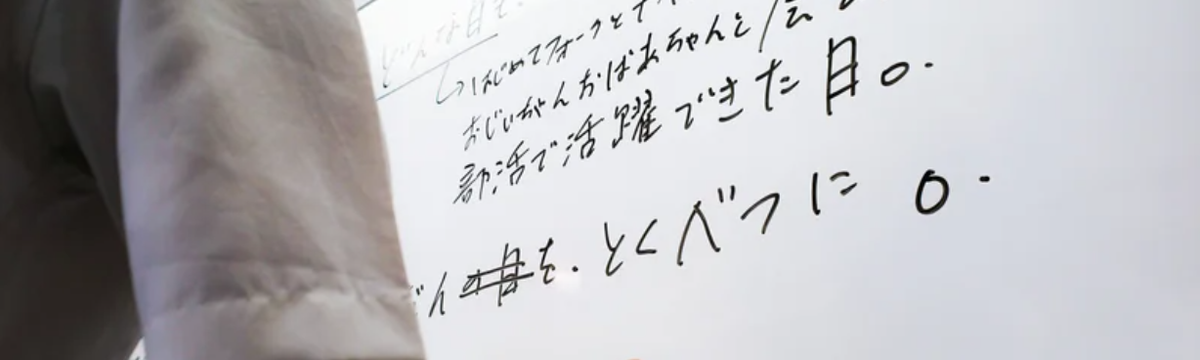 どんな日を.
↳はじめてフォークとナイ
おじいちゃんおばあちゃんと
部活で活躍できた日。.
どんな日を.とくべつに 0.